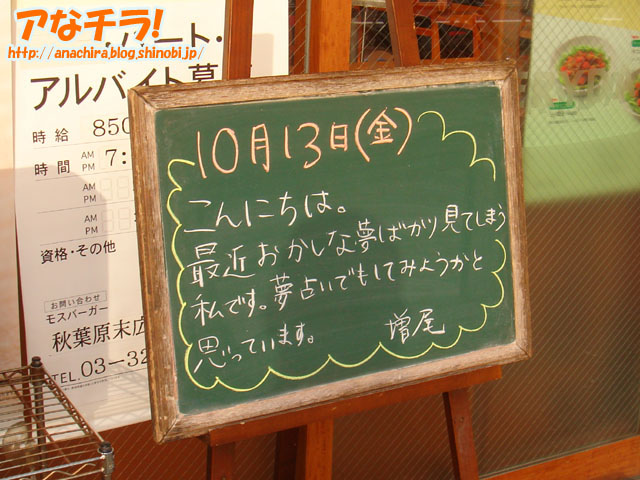 アなチラ!
http://anachira.blog.shinobi.jp/
アルバイト募
時給 850
時間 AM PM 7:
AM PM
AM PM
資格・その他
お問い合わせ
モスバーガー
秋葉原末広
TEL.03-32
10月13日(金)
こんにちは。
最近おかしな夢ばかり見てしまう
私です。夢占いでもしてみようかと
思っています。 増尾